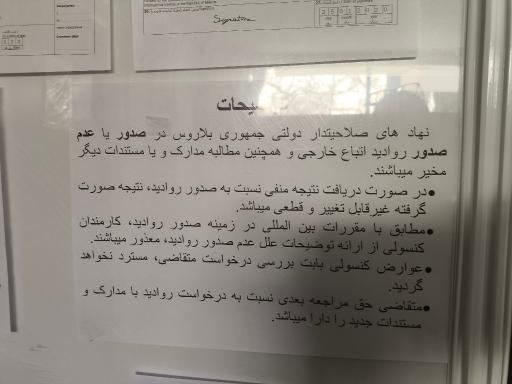 Signature
2 5 0 1 2 0 2 0
نهاد های صلاحیتدار دولتی جمهوری بلاروس در صدور یا عدم
صدور روادید اتباع خارجی و همچنین مطالبه مدارک و یا مستندات دیگر
مخیر میباشند.
•در صورت دریافت نتیجه منفی نسبت به صدور روادید، نتیجه صورت
گرفته غیرقابل تغییر و قطعی میباشد.
•مطابق با مقررات بین المللی در زمینه صدور روادید، کارمندان
کنسولی از ارائه توضیحات علل عدم صدور روادید، معذور میباشند.
•عوارض کنسولی بابت بررسی درخواست متقاضی، مسترد نخواهد
گردید.
•متقاضی حق مراجعه بعدی نسبت به درخواست روادید با مدارک و
مستندات جدید را دارا میباشد.